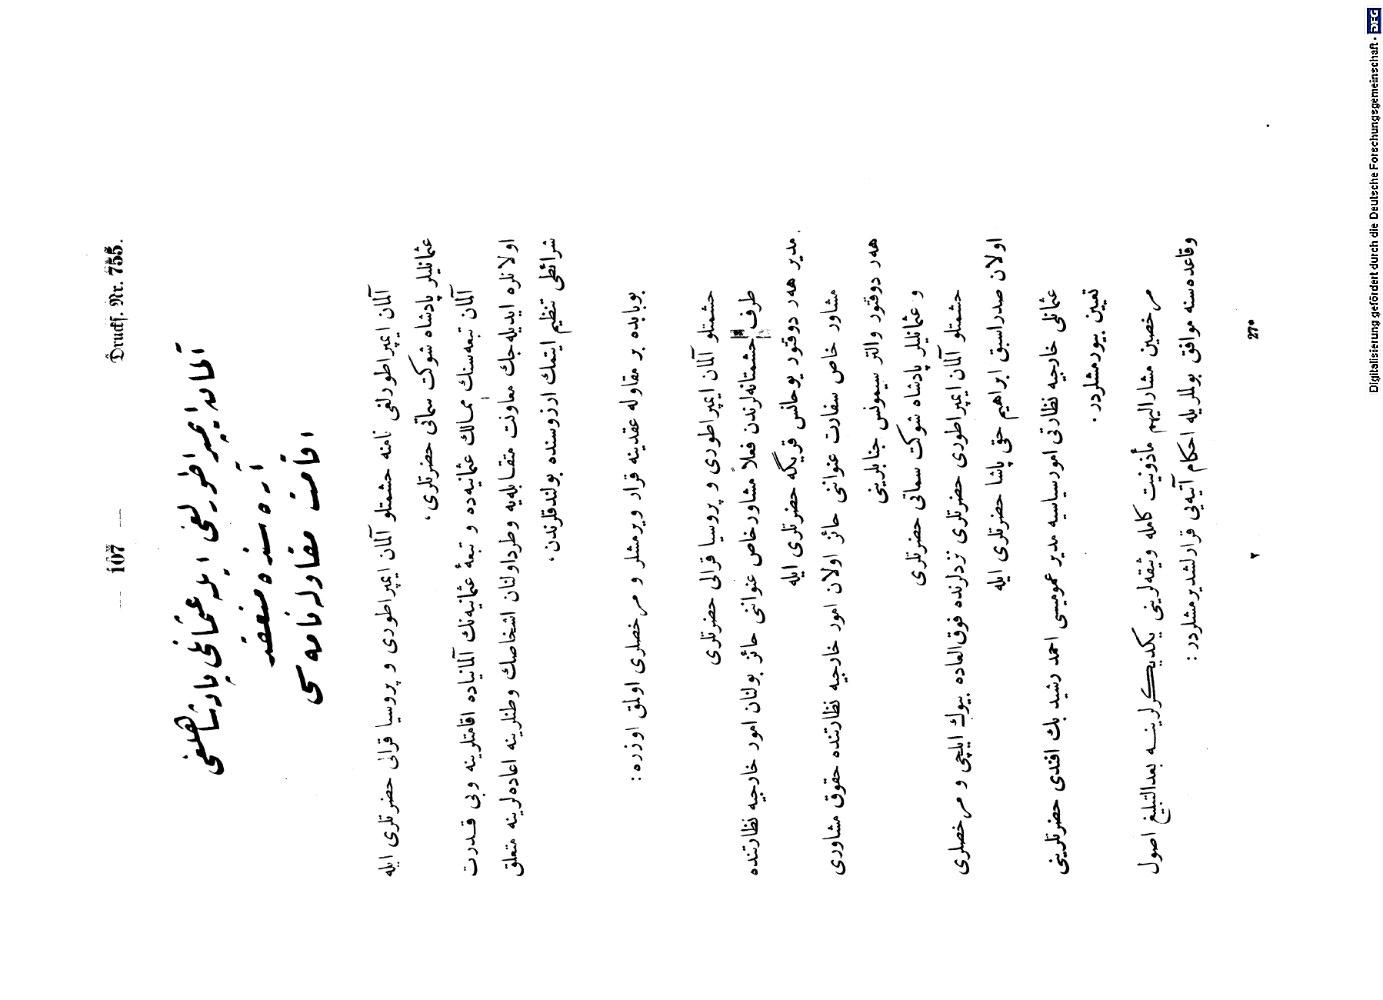 — 107 —
Druckſ. Nr. 755.
آلمان ایمپراطورلغی ایله عثمانلی پادشاهلغی
آره سنده منعقد
اقامت مقاوله نامه سی
آلمان ایمپراطورلغی نامنه حشمتلو آلمان ایمپراطوری و پروسیا قرالی حضرتلری ایله
عثمانلیلر پادشاه شوکت سماتی حضرتلری،
آلمان تبعه سنك ممالك عثمانیه ده و تبعهٔ عثمانیه نك آلمانیاده اقامتلرینه وبی قدرت
اولانلره ایدیله جك معاونت متقابله یه وطرداولنان اشخاصك وطنلرینه اعاده لرینه متعلق
شرائطی تنظیم ایتمك ارزوسنده بولندقلرندن،
بوبابده بر مقاوله عقدینه قرار ویرمشلر و مرخصلری اولمق اوزره :
حشمتلو آلمان ایمپراطوری و پروسیا قرالی حضرتلری
طرف حشمتانه لرندن فعلاً مشاورخاص عنواننی حائز بولنان امور خارجیه نظارتنده
مدیر هه ر دوقتور یوحانس قریگه حضرتلری ایله
مشاور خاص سفارت عنواننی حائز اولان امور خارجیه نظارتنده حقوق مشاوری
هه ر دوقتور والتر سیمونس جنابلرینی
و عثمانلیلر پادشاه شوکت سماتی حضرتلری
حشمتلو آلمان ایمپراطوری حضرتلری نزدلرنده فوق العاده بیوك ایلچی و مرخصلری
اولان صدراسبق ابراهیم حقی پاشا حضرتلری ایله
عثمانلی خارجیه نظارتی امورسیاسیه مدیر عمومیسی احمد رشید بك افندی حضرتلرینی
تعیین بیورمشلردر.
مرخصین مشارالیهم مأذونیت کامله وثیقه لرینی یکدیکرلرینه بعدالتبلیغ اصول
وقاعده سنه موافق بولملریله احکام آتیه یی قرارلشدیرمشلردر :
۲
27*
Digitalisierung gefördert durch die Deutsche Forschungsgemeinschaft - DFG